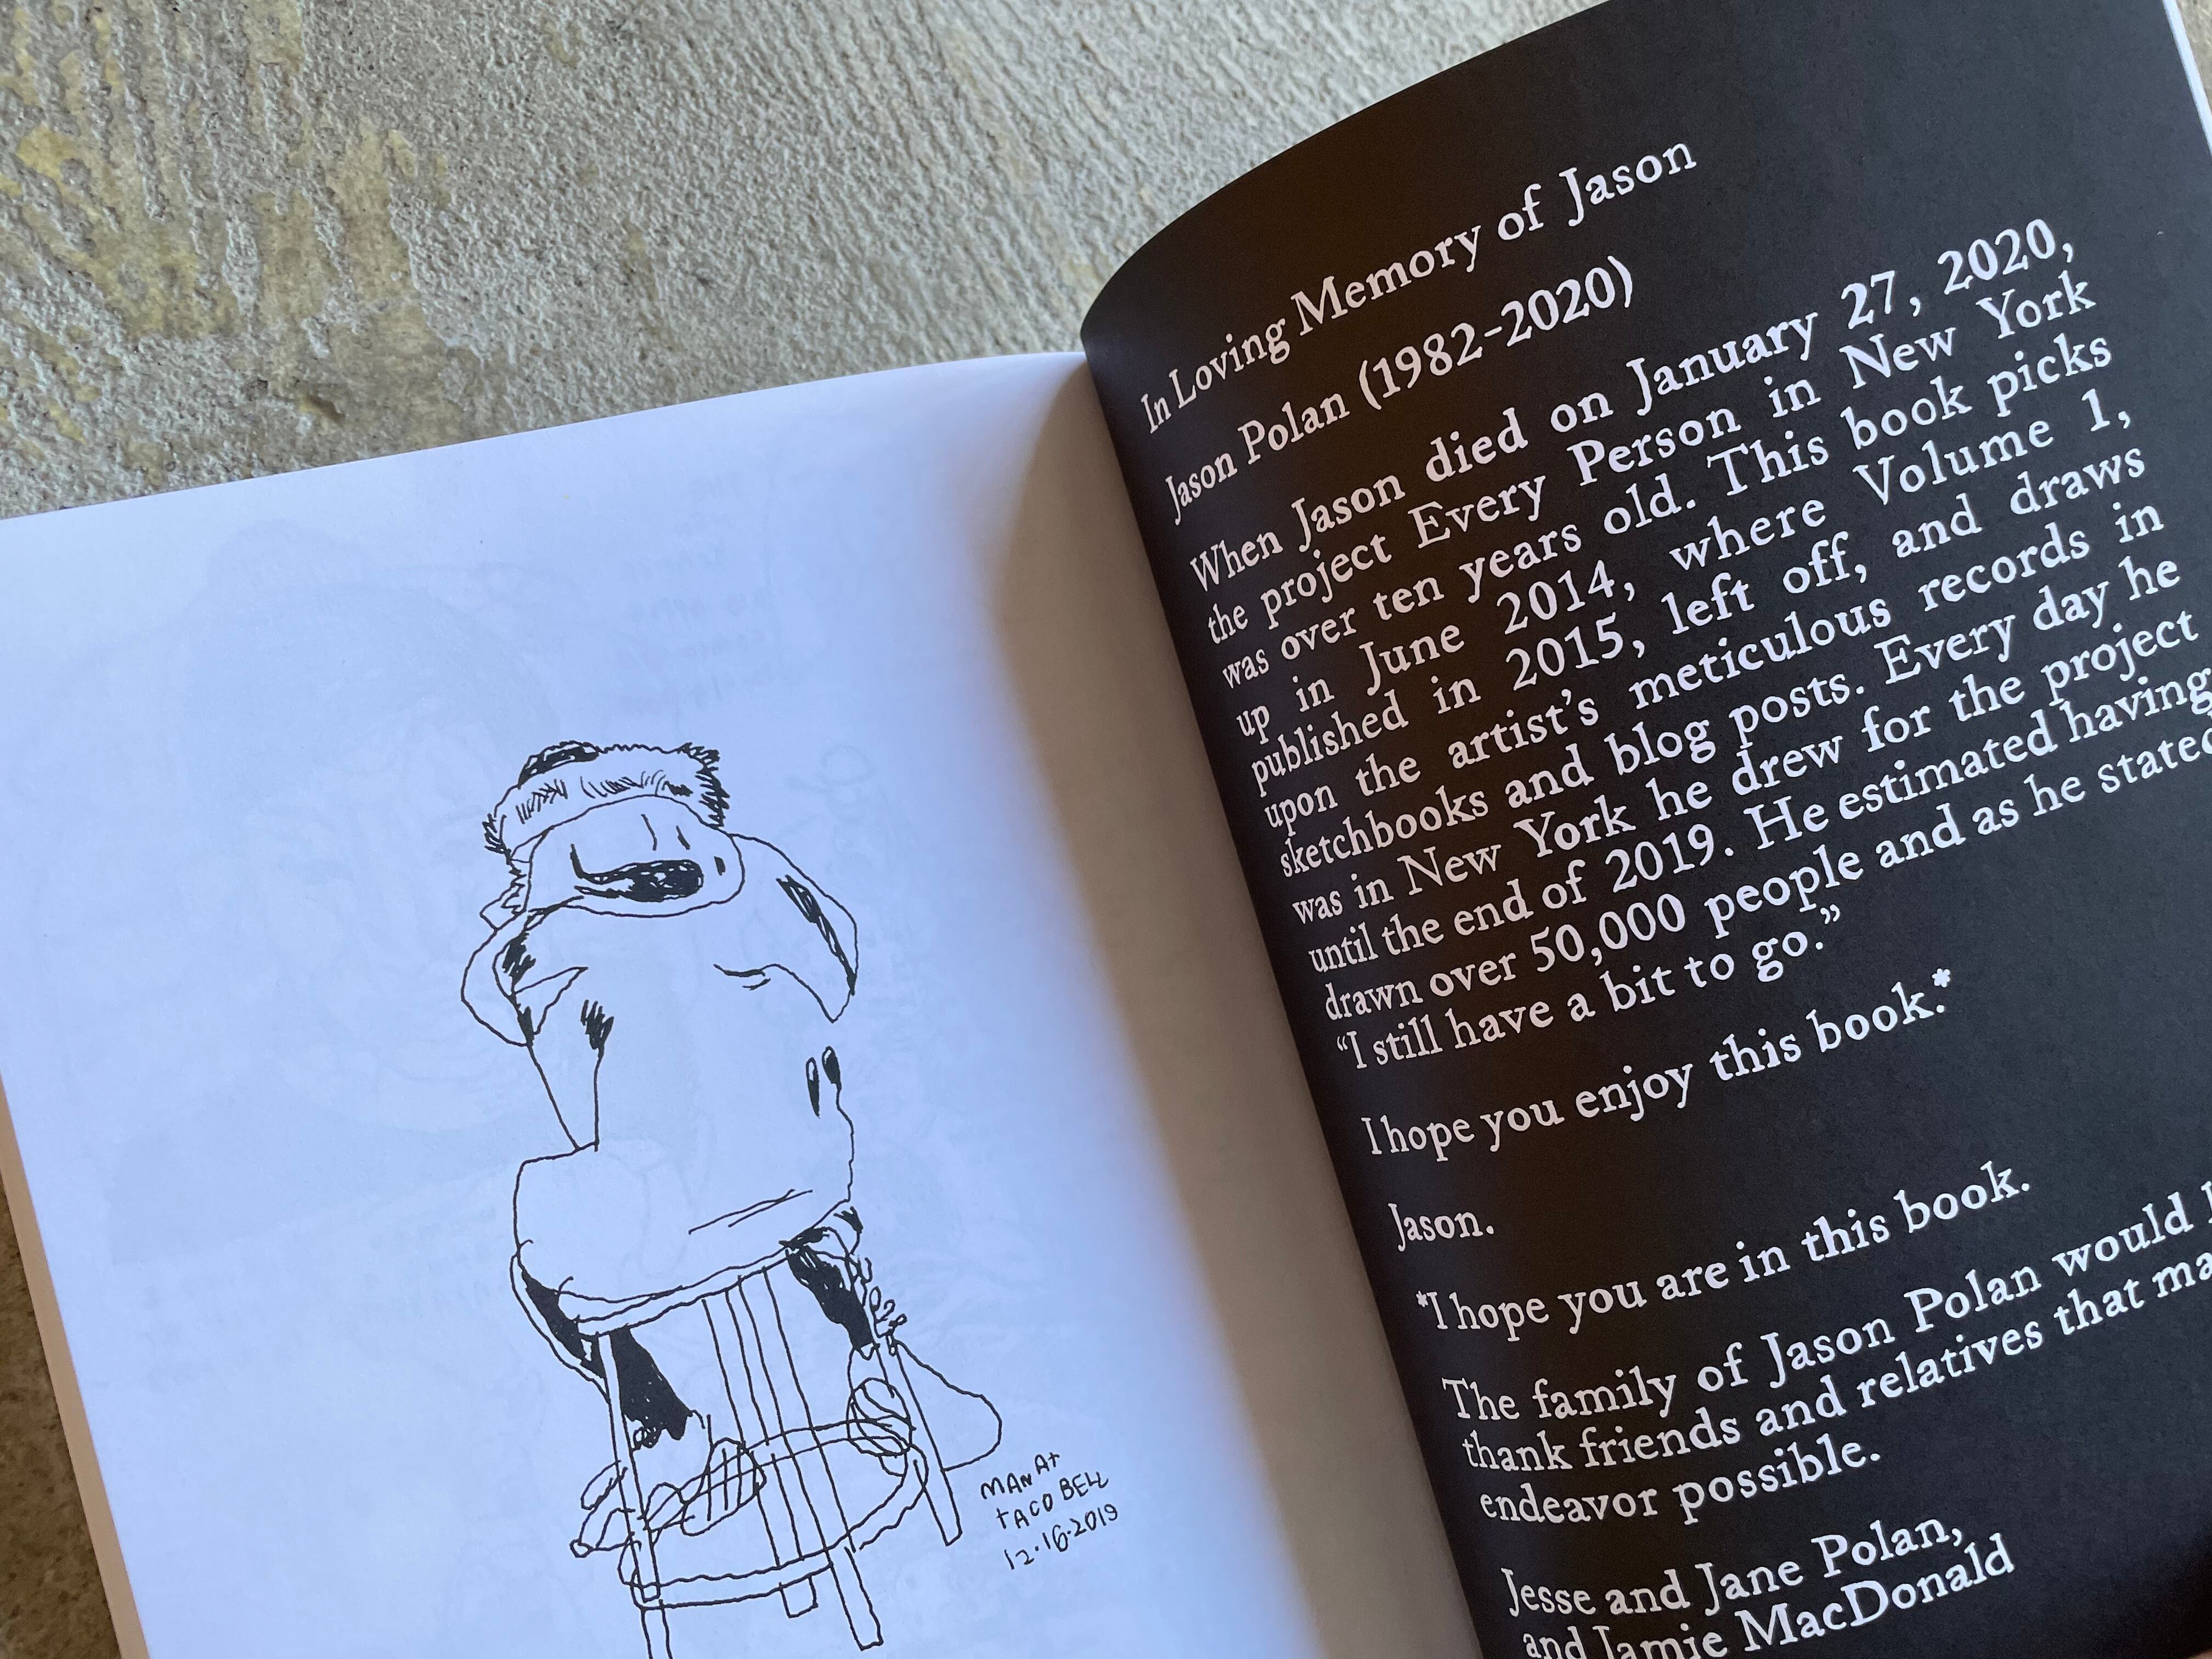 MAN At
tACO BELL
12.16.2019
In Loving Memory of Jason
Jason Polan (1982-2020)
When Jason died on January 27, 2020,
the project Every Person in New York
was over ten years old. This book picks
up in June 2014, where Volume 1,
published in 2015, left off, and draws
upon the artist's meticulous records in
sketchbooks and blog posts. Every day he
was in New York he drew for the project
until the end of 2019. He estimated having
drawn over 50,000 people and as he stated
“I still have a bit to go.”
I hope you enjoy this book.*
Jason.
*I hope you are in this book.
The family of Jason Polan would
thank friends and relatives that
endeavor possible.
Jesse and Jane Polan,
and Jamie MacDonald